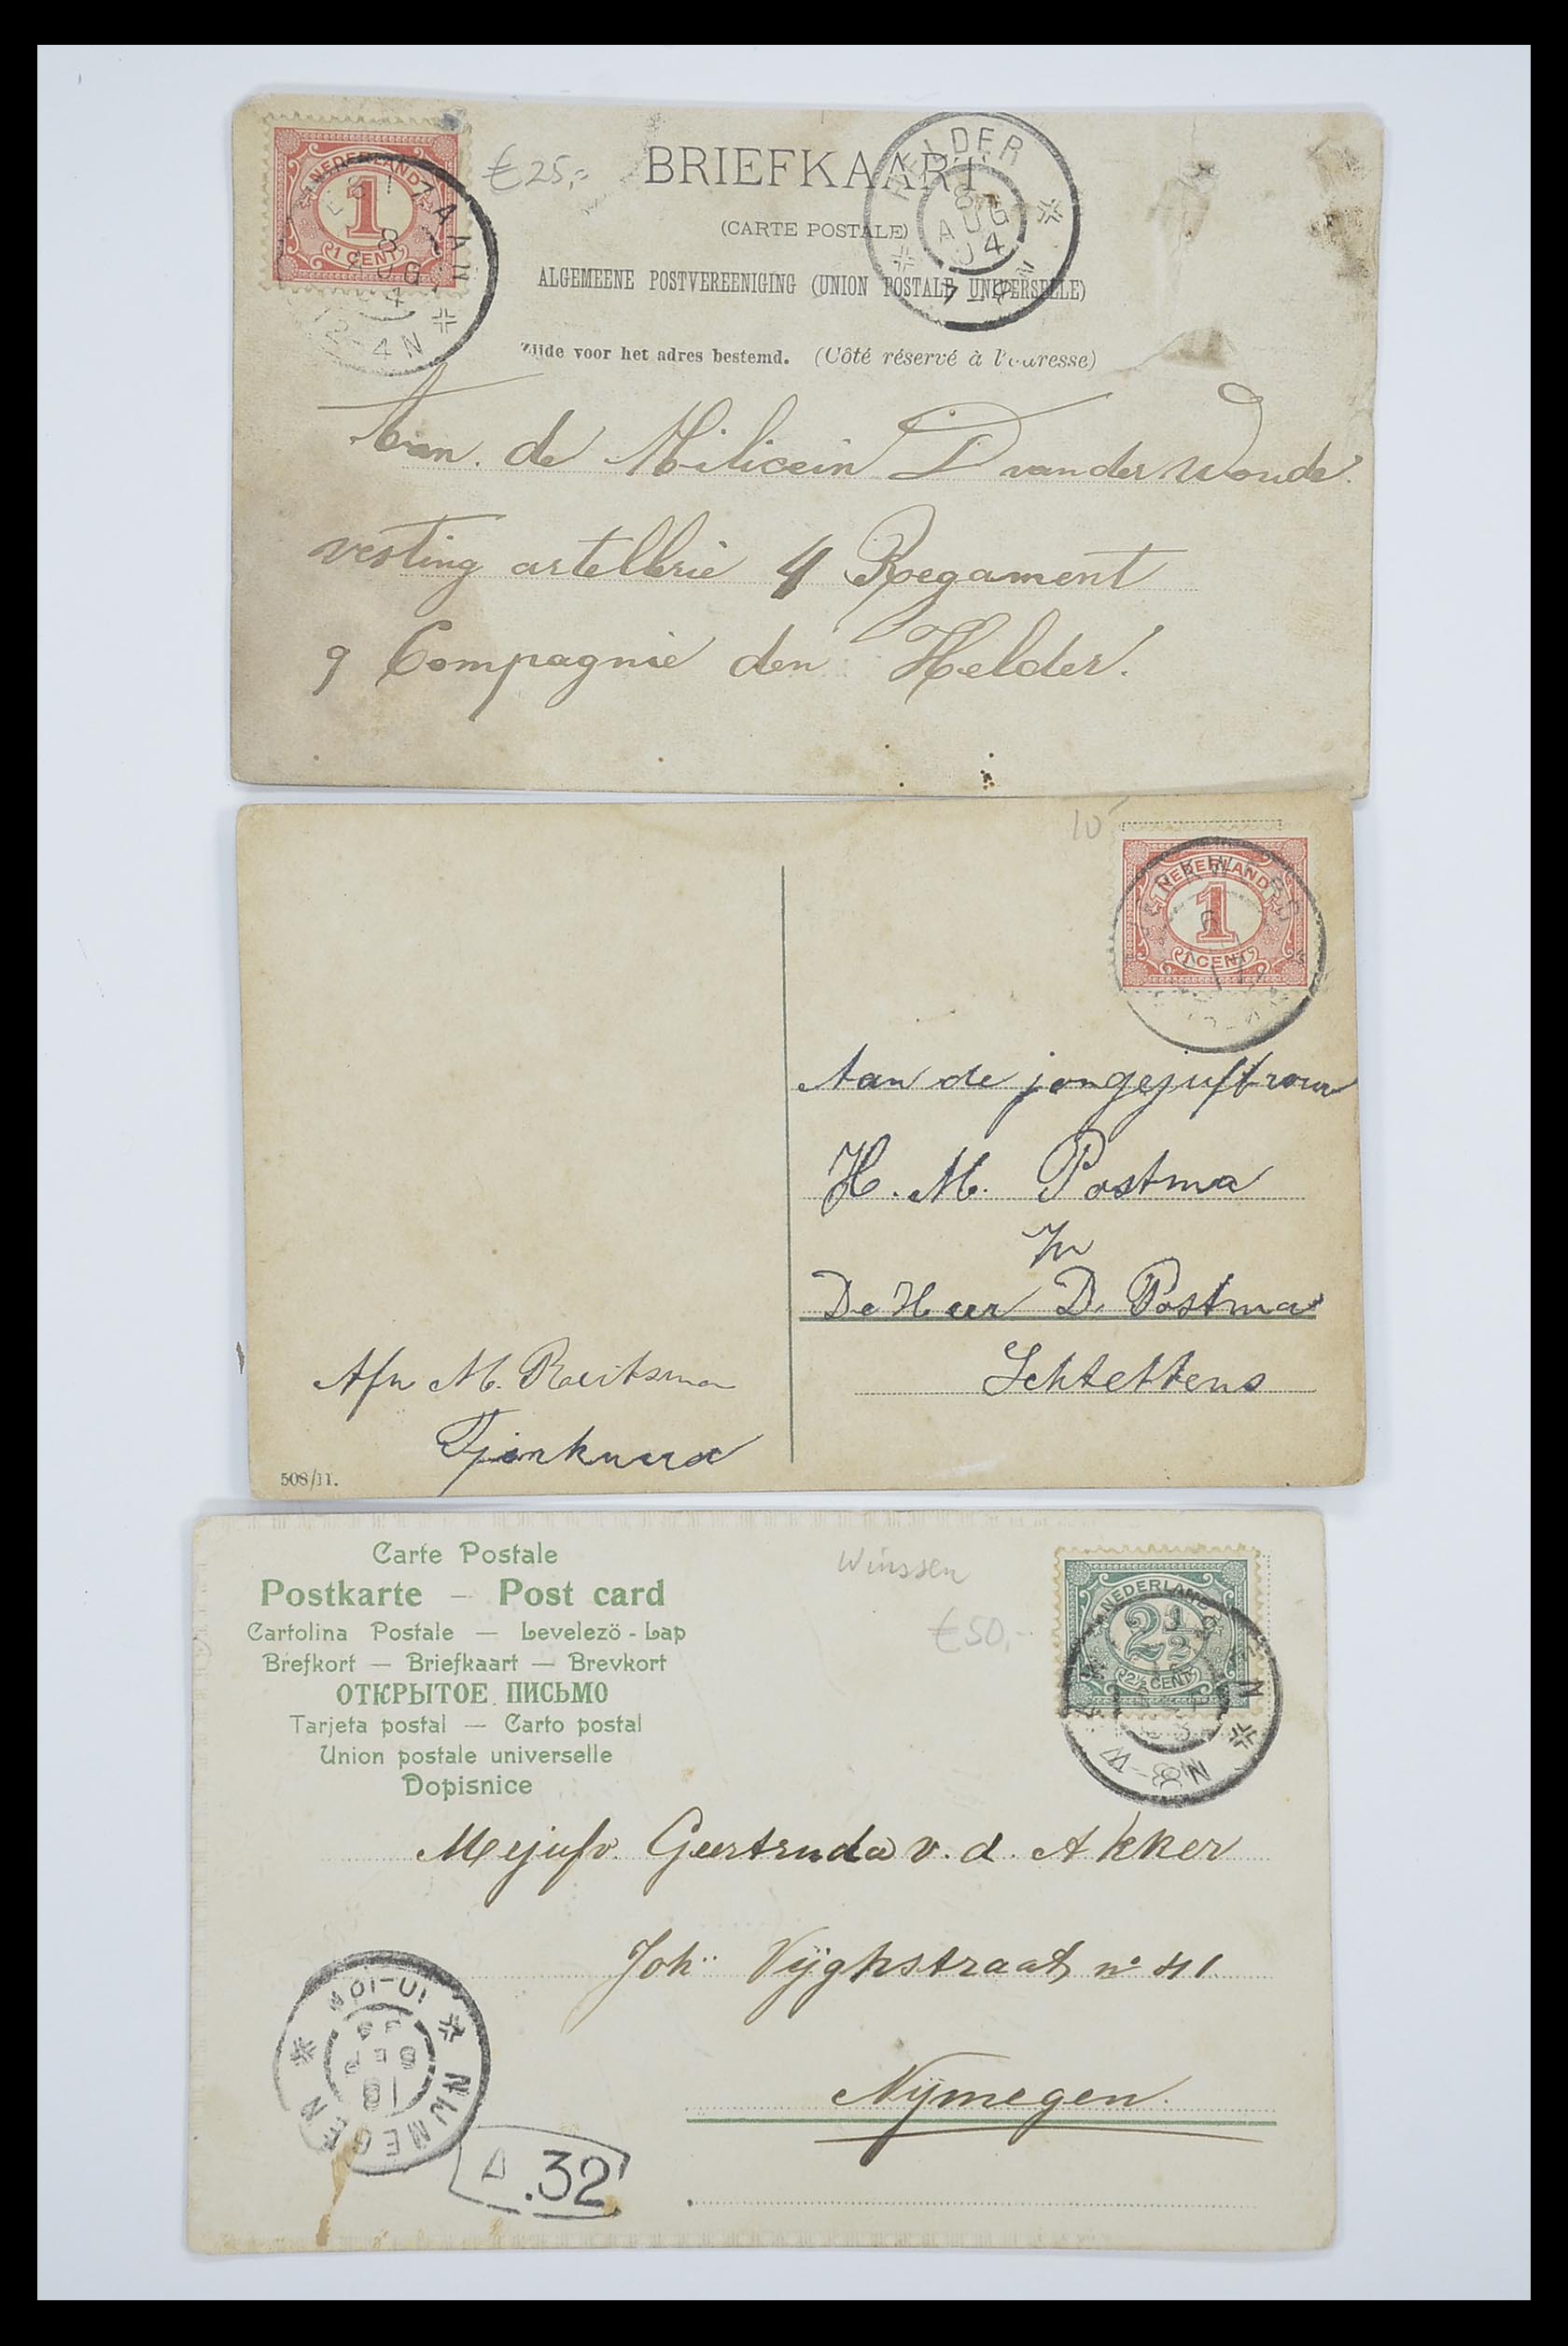 NEDERLAND
1
1 CENT
8
AUG
4
12-4N
€25,-
BRIEFKAART
HELDER
8
AUG
04
(CARTE POSTALE)
ALGEMEENE POSTVEREENIGING (UNION POSTALE UNIVERSELLE)
Zijde voor het adres bestemd. (Côté réservé à l'adresse)
Aan de Milicein D van der Woude.
vesting artellerie 4 Regament
9 Compagnie den Helder.
10
NEDERLAND
1
1 CENT
Aan de jongejuffrouw
H. M. Postma
De Heer D. Postma
Schtettens
Afn M. Reitsma
Tjerkwerd
508/11.
Carte Postale
Postkarte – Post card
Cartolina Postale — Levelezö-Lap
Brefkort — Briefkaart — Brevkort
ОТКРЫТОЕ ПИСЬМО
Tarjeta postal — Carto postal
Union postale universelle
Dopisnice
Winssen
€50,-
NEDERLAND
2½
2½ CENT
Mejufv. Geertruda v. d. Akker
Joh.. Vijghstraat no 41.
Nijmegen.
NIJMEGEN
10-10V
18
SEP
.32